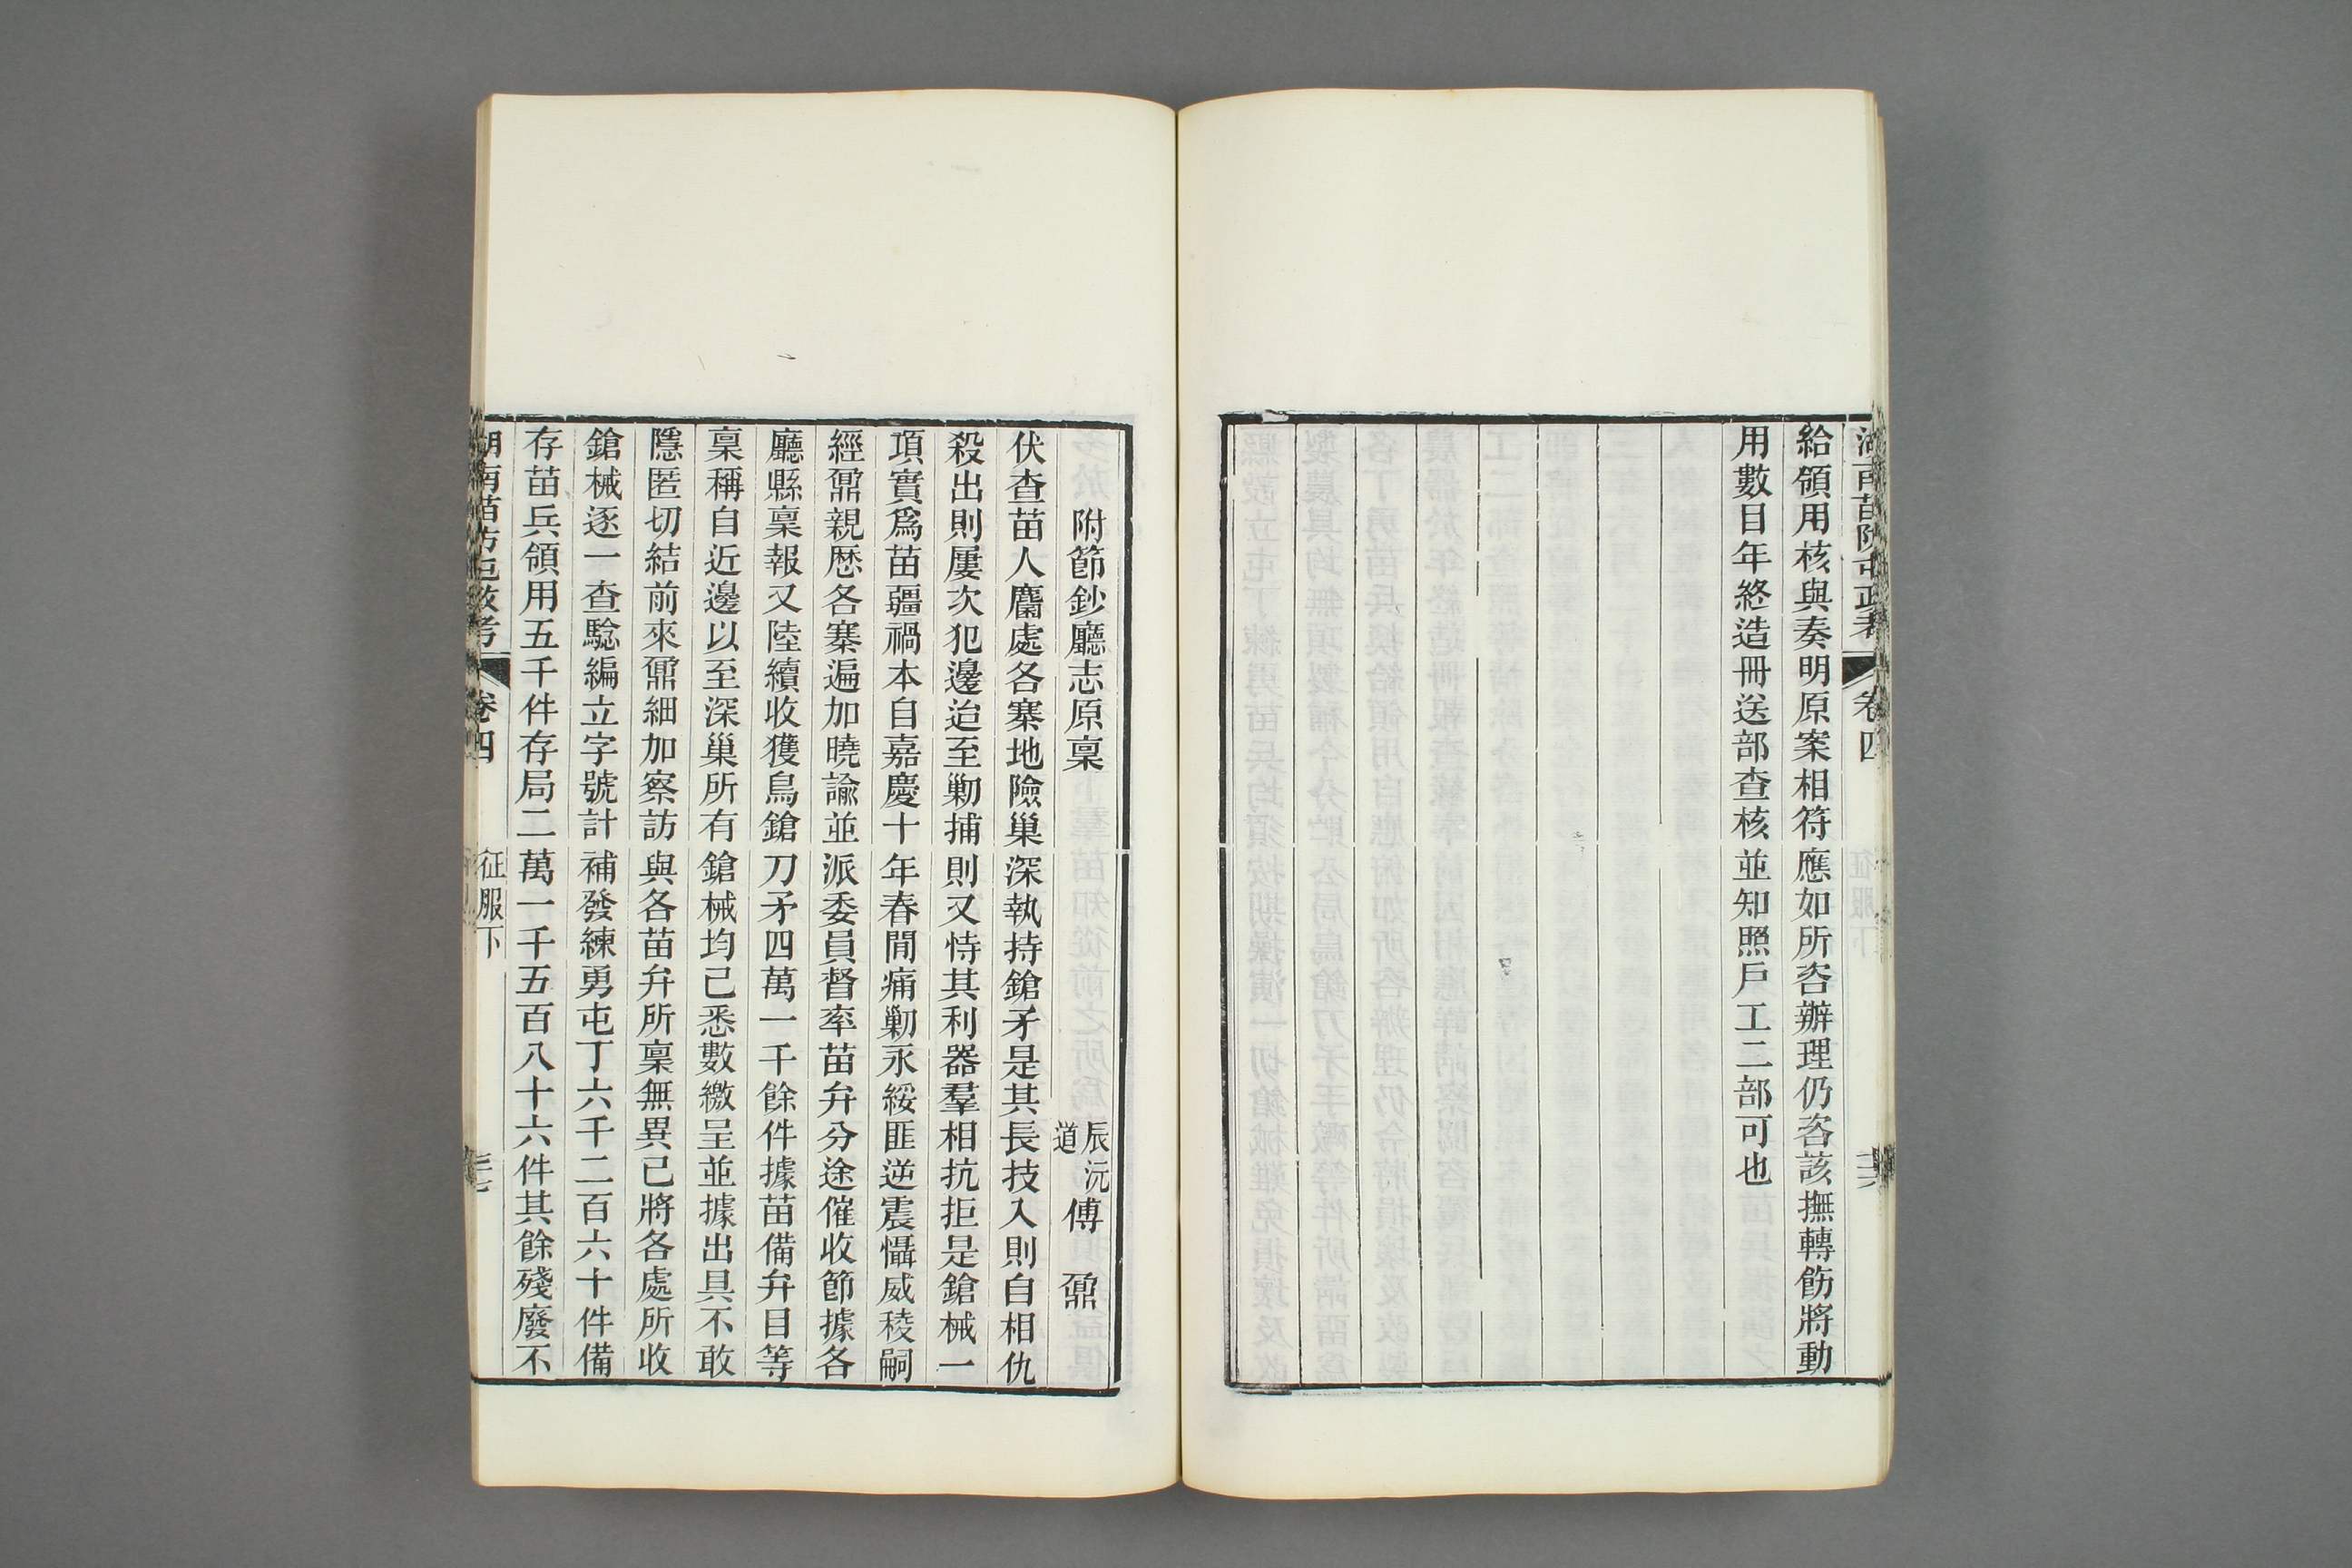 給領用核與奏明原案相符應如所咨辦理仍咨該撫轉飭將動
用數目年終造冊送部查核並知照戶工二部可也
附節鈔廳志原稟
辰沅道傅鼐
伏查苗人麕處各寨地險巢深執持鎗矛是其長技入則自相仇
殺出則屢次犯邊迨至勦捕則又恃其利器羣相抗拒是鎗械一
項實爲苗疆禍本自嘉慶十年春閒痛勦永綏匪逆震懾威稜嗣
經鼐親歷各寨遍加曉諭並派委員督率苗弁分途催收節據各
廳縣稟報又陸續收獲鳥鎗刀矛四萬一千餘件據苗備弁目等
稟稱自近邊以至深巢所有鎗械均已悉數繳呈並據出具不敢
隱匿切結前來鼐細加察訪與各苗弁所稟無異已將各處所收
鎗械逐一查騐編立字號計補發練勇屯丁六千二百六十件備
存苗兵領用五千件存局二萬一千五百八十六件其餘殘廢不
卷四
征服下